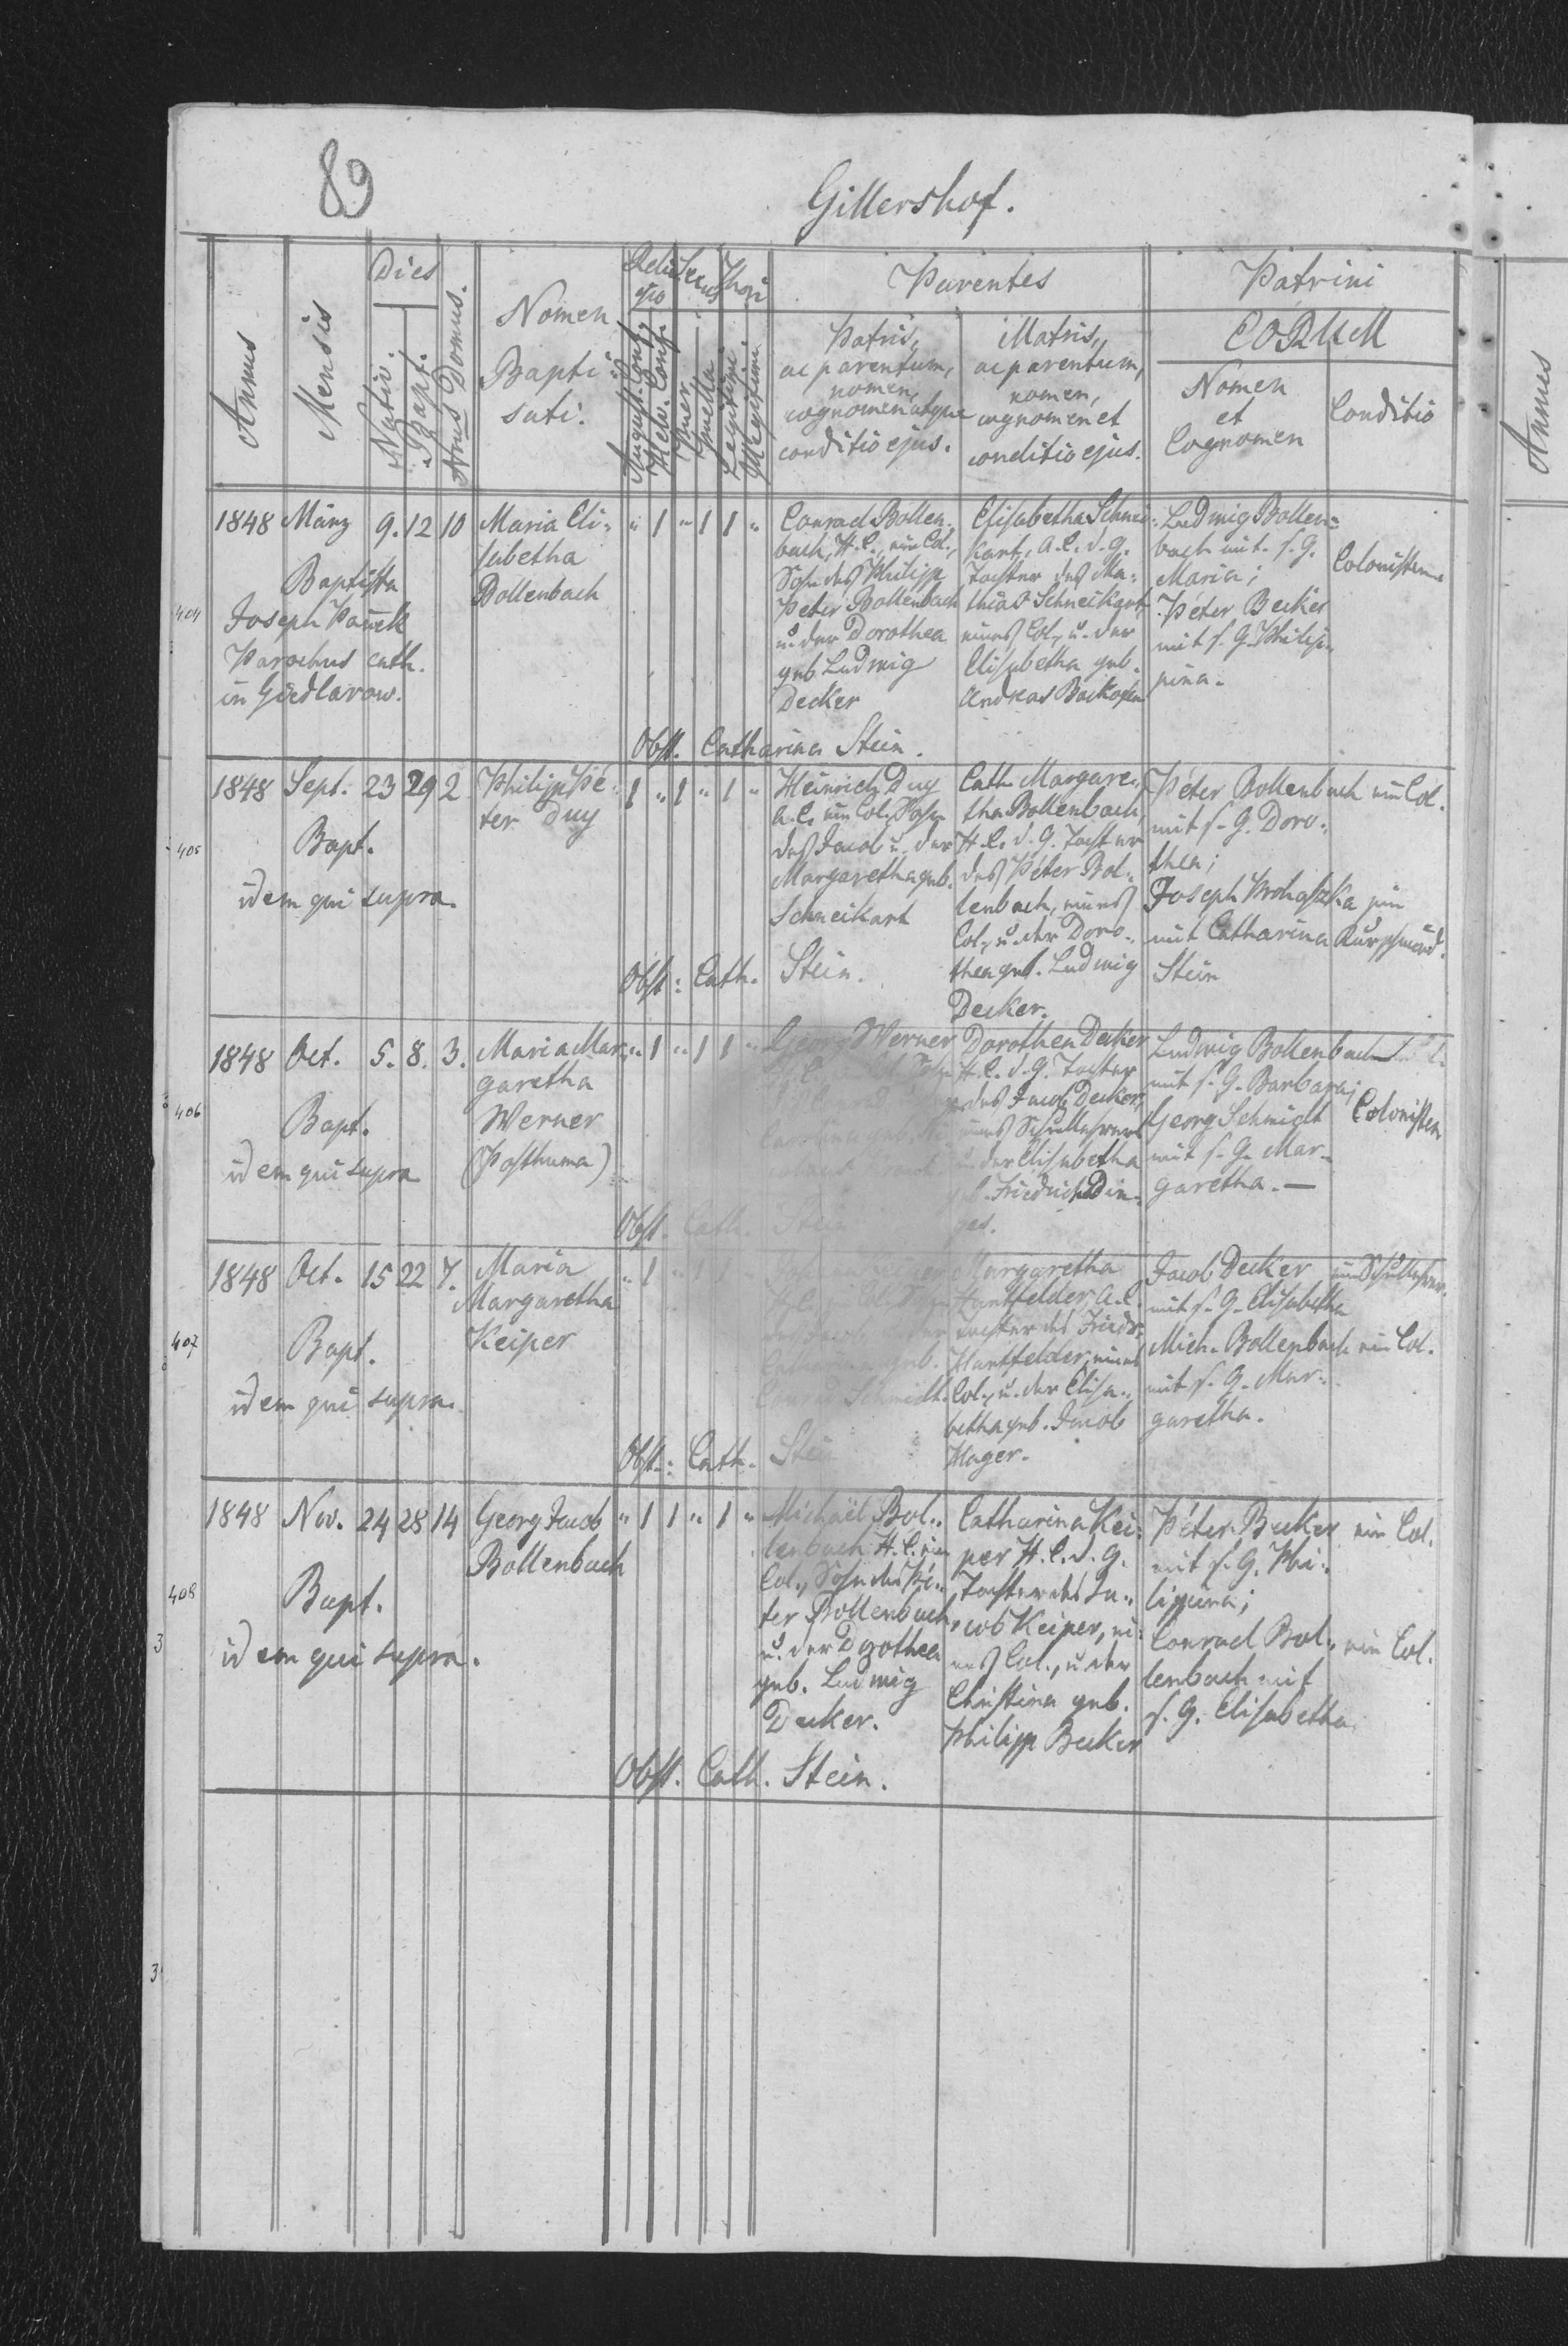 89
Gillershof.
Annus
Mensis
Dies
Nativ.
Bapt.
Nrus Domus.
Nomen
Bapti-
sati.
Reli-
gio
August. Conf.
Helv. Conf.
Sexus
Puer
Puella
Thori
Legitimi
Illegitimi
Parentes
Patris,
ac parentum,
nomen,
cognomen atque
conditio ejus.
Matris,
ac parentum,
nomen,
cognomen et
conditio ejus.
Patrini
EORUM
Nomen
et
Cognomen
Conditio
Annus
404
1848 März 9. 12 10
Baptista
Joseph
Parochus cath.
in Giedlarow.
Maria Eli-
sabetha
Bollenbach
" 1 " 1 1 "
Conrad Bollen-
bach, H. C., ein Col.,
Sohn des Philipp
Peter Bollenbach
u. der Dorothea
geb Ludwig
Decker
Elisabetha Schnei-
kart, A. C. d. G.
Tochter des Ma-
thias Schneikart
eines Col., u. der
Elisabetha geb.
Andreas
Ludwig Bollen-
bach mit s. G.
Maria;
Peter Becker
mit s. G. Philip-
pina.
Colonisten
Obst. Catharina Stein.
405
1848 Sept. 23 29 2
Bapt.
idem qui supra.
Philipp Pe-
ter Duy
1 " 1 " 1 "
Heinrich Duy
A. C. ein Col., Sohn
des Jacob u. der
Margaretha geb.
Schneikart
Cath. Margare-
tha Bollenbach,
H. C. d. G. Tochter
des Peter Bol-
lenbach, eines
Col., u. der Doro-
thea geb. Ludwig
Decker.
Peter Bollenbach ein Col.
mit s. G. Doro-
thea;
Joseph
mit Catharina
Stein
Obst: Cath. Stein.
406
1848 Oct. 5. 8. 3.
Bapt.
idem qui supra
Maria Mar-
garetha
Werner
(Posthuma)
" 1 " 1 1 "
Georg Werner
Dorothea Decker
H. C. d. G. Tochter
des Jacob Decker,
eines Schullehrers
u. der Elisabetha
geb. Friedrich Din-
ges.
Ludwig Bollenbach
mit s. G. Barbara;
Georg Schmidt
mit s. G. Mar-
garetha. —
Colonisten
Obst. Cath. Stein
407
1848 Oct. 15 22 7.
Bapt.
idem qui supra.
Maria
Margaretha
Keiper
" 1
geb.
Conrad Schmidt.
Margaretha
Hartfelder A. C.
Tochter des Friedr.
Hartfelder, eines
Col., u. der Elisa-
betha geb. Jacob
Hager.
Jacob Decker ein Schullehrer.
mit s. G. Elisabetha
Mich. Bollenbach ein Col.
mit s. G. Mar-
garetha.
Obst.: Cath. Stein
408
1848 Nov. 24 28 14
Bapt.
idem qui supra.
Georg Jacob
Bollenbach
" 1 1 " 1 "
Michaël Bol-
lenbach H. C. ein
Col., Sohn des Pe-
ter Bollenbach,
u. der Dorothea
geb. Ludwig
Decker.
Catharina Kei-
per H. C. d. G.
Tochter des Ja-
cob Keiper, ei-
nes Col., u. der
Christina geb.
Philipp Becker
Peter Becker ein Col.
mit s. G. Phi-
lippina;
Conrad Bol- ein Col.
lenbach mit
s. G. Elisabetha.
Obst. Cath. Stein.
3
3